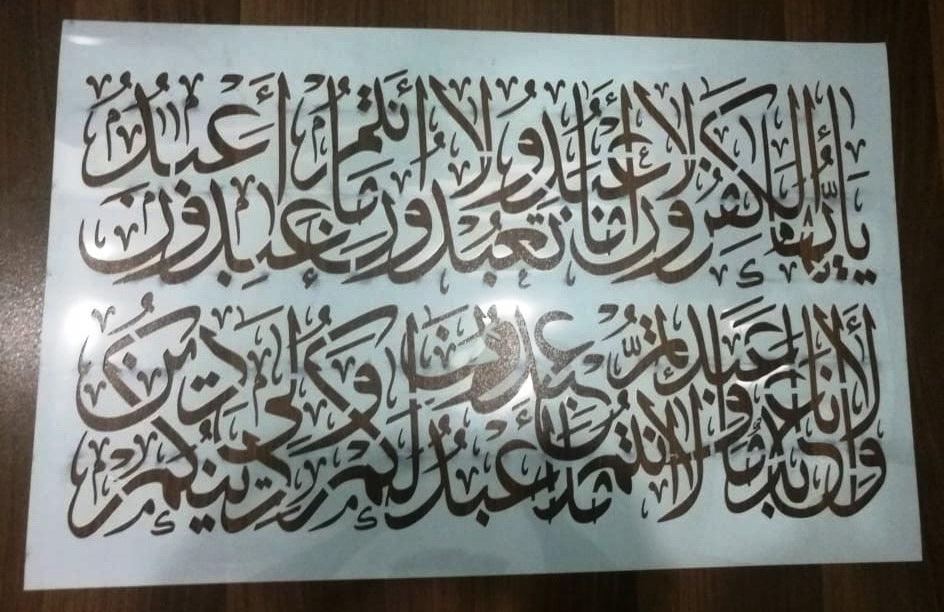 يَأَيُّهَا الكَفِرُونَ لَا أَعْبُدُ مَا تَعْبُدُونَ وَلَا أَنْتُمْ عَبِدُونَ مَا أَعْبُدُ
وَلَا أَنَا عَابِدٌ مَا عَبَدْتُمْ وَلَا أَنْتُمْ عَبِدُونَ مَا أَعْبُدُ لَكُمْ دِينُكُمْ وَلِيَ دِينِ